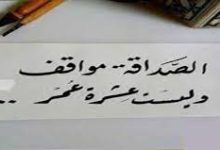 الصَّدَاقة.. مواقف
وليسَت عِشرة عُمُر ..